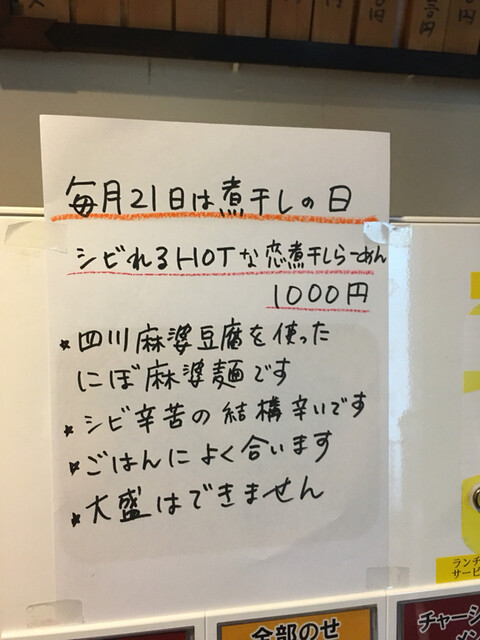 毎月21日は煮干しの日
シビれるHOTな恋煮干しらーめん
1000円
★四川麻婆豆腐を使った
にぼ麻婆麺です
★シビ辛苦の結構辛いです
★ごはんによく合います
★大盛はできません
ランチ
サービ
全部のせ
チャーシ